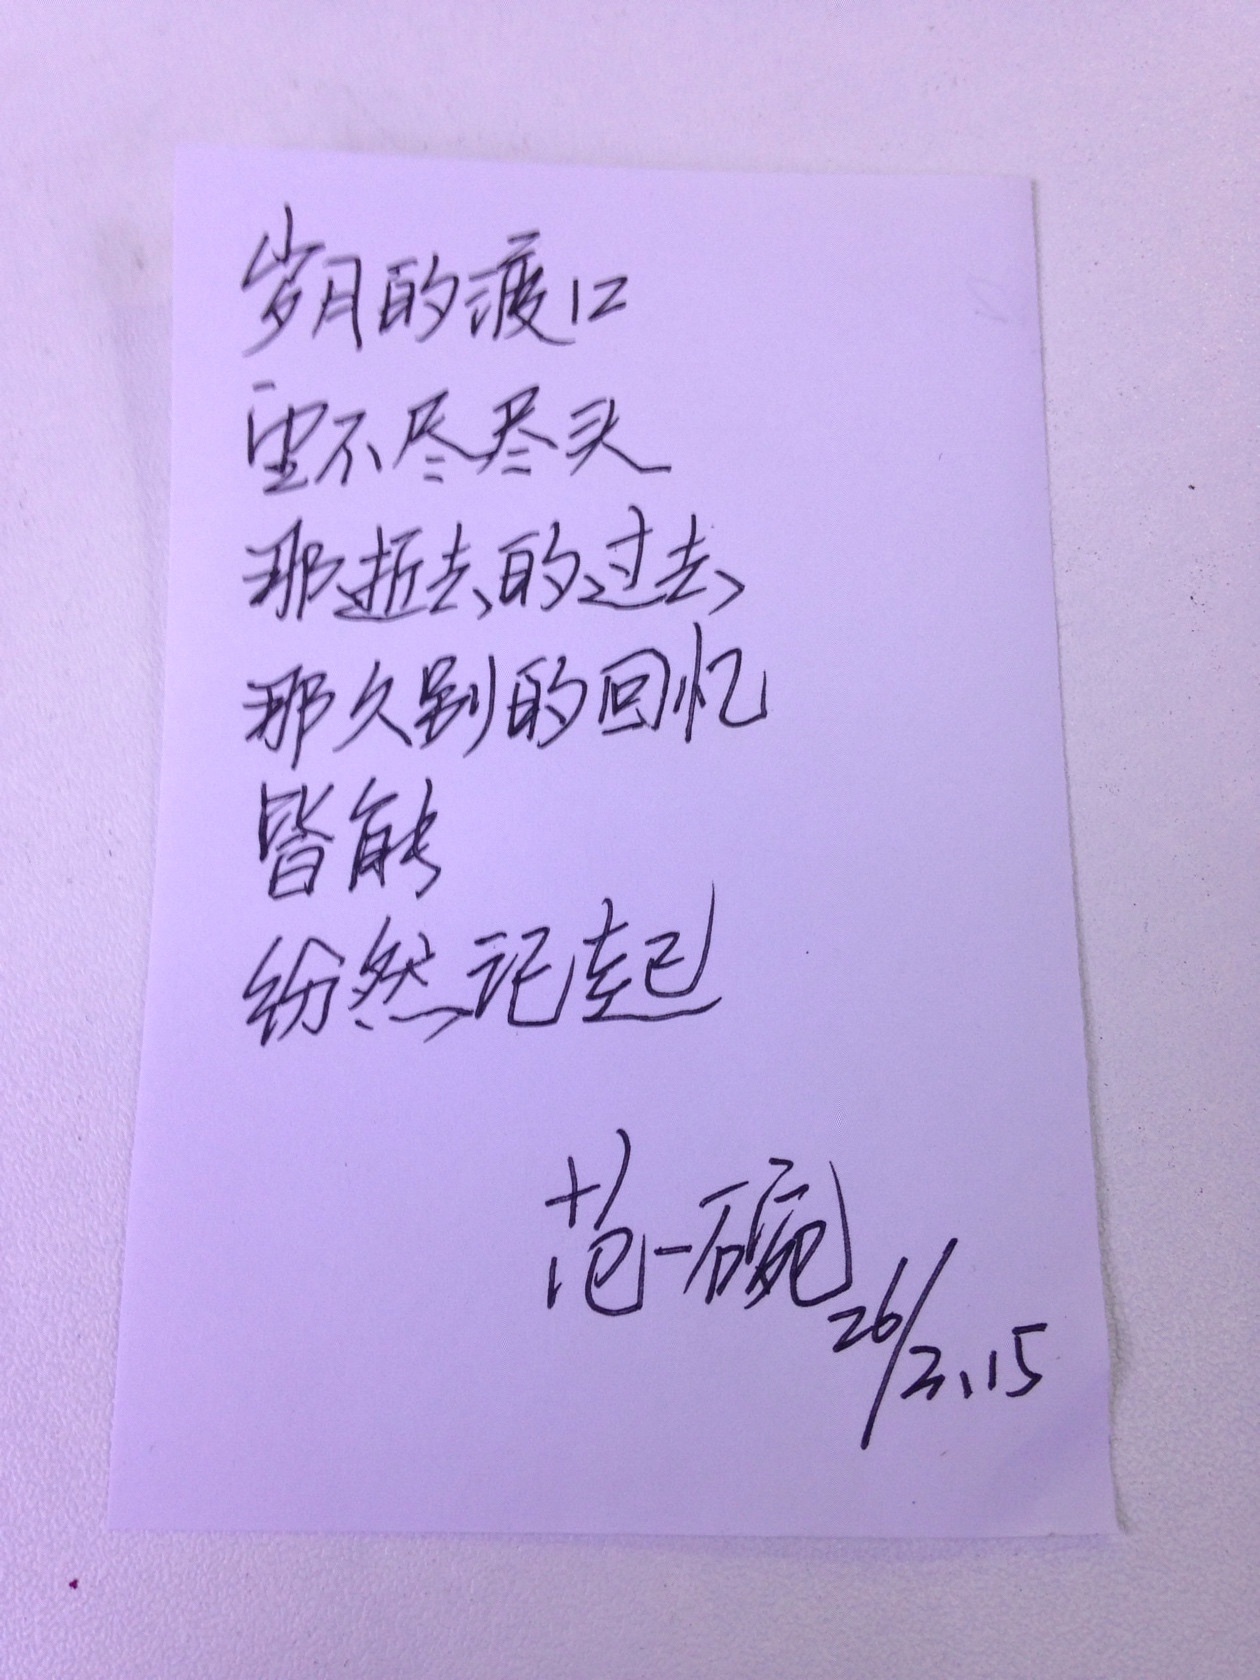 岁月的渡口
望不尽尽头
那逝去的过去
那久别的回忆
皆能
纷然记起
范一碗
26/2.15